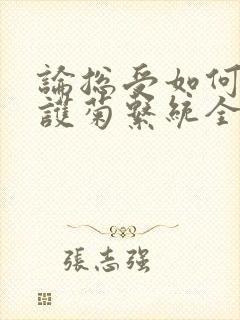 論總受如何
護菊繫統全
張志強